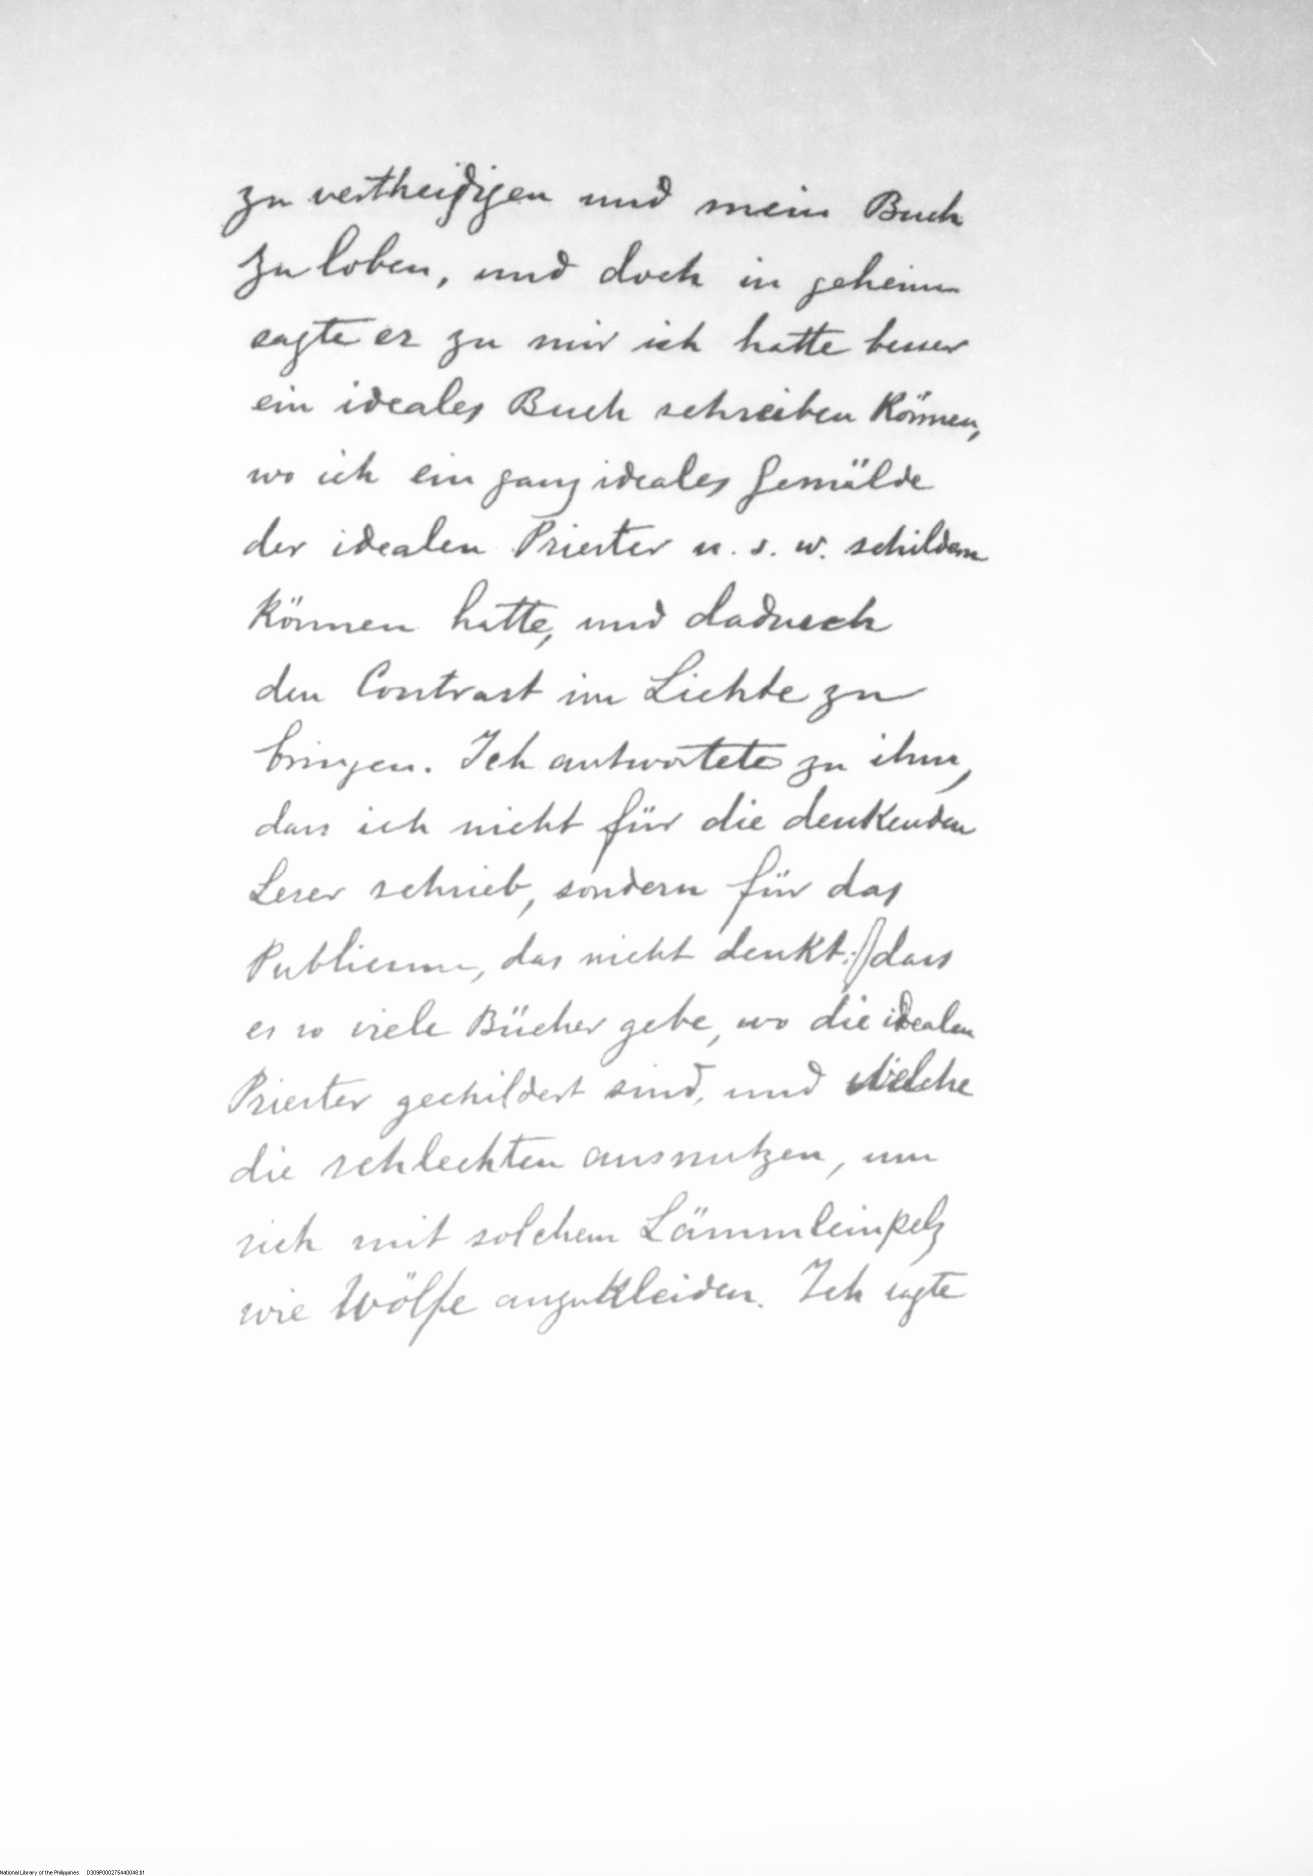 zu vertheidigen und mein Buch
zu loben, und doch in geheim
sagte er zu mir ich hatte besser
ein ideales Buch schreiben können,
wo ich ein ganz ideales Gemälde
der idealen Priester u. s. w. schildern
können hatte, und dadurch
den Contrast im Lichte zu
bringen. Ich antwortete zu ihm,
dass ich nicht für die denkenden
Leser schrieb, sondern für das
Publicum, das nicht denkt: dass
es so viele Bücher gebe, wo die idealen
Priester geschildert sind, und welche
die schlechten ausnutzen, um
sich mit solchem Lämmleinpelz
wie Wölfe anzukleiden. Ich sagte
National Library of the Philippines D309P0002754A0048.tif